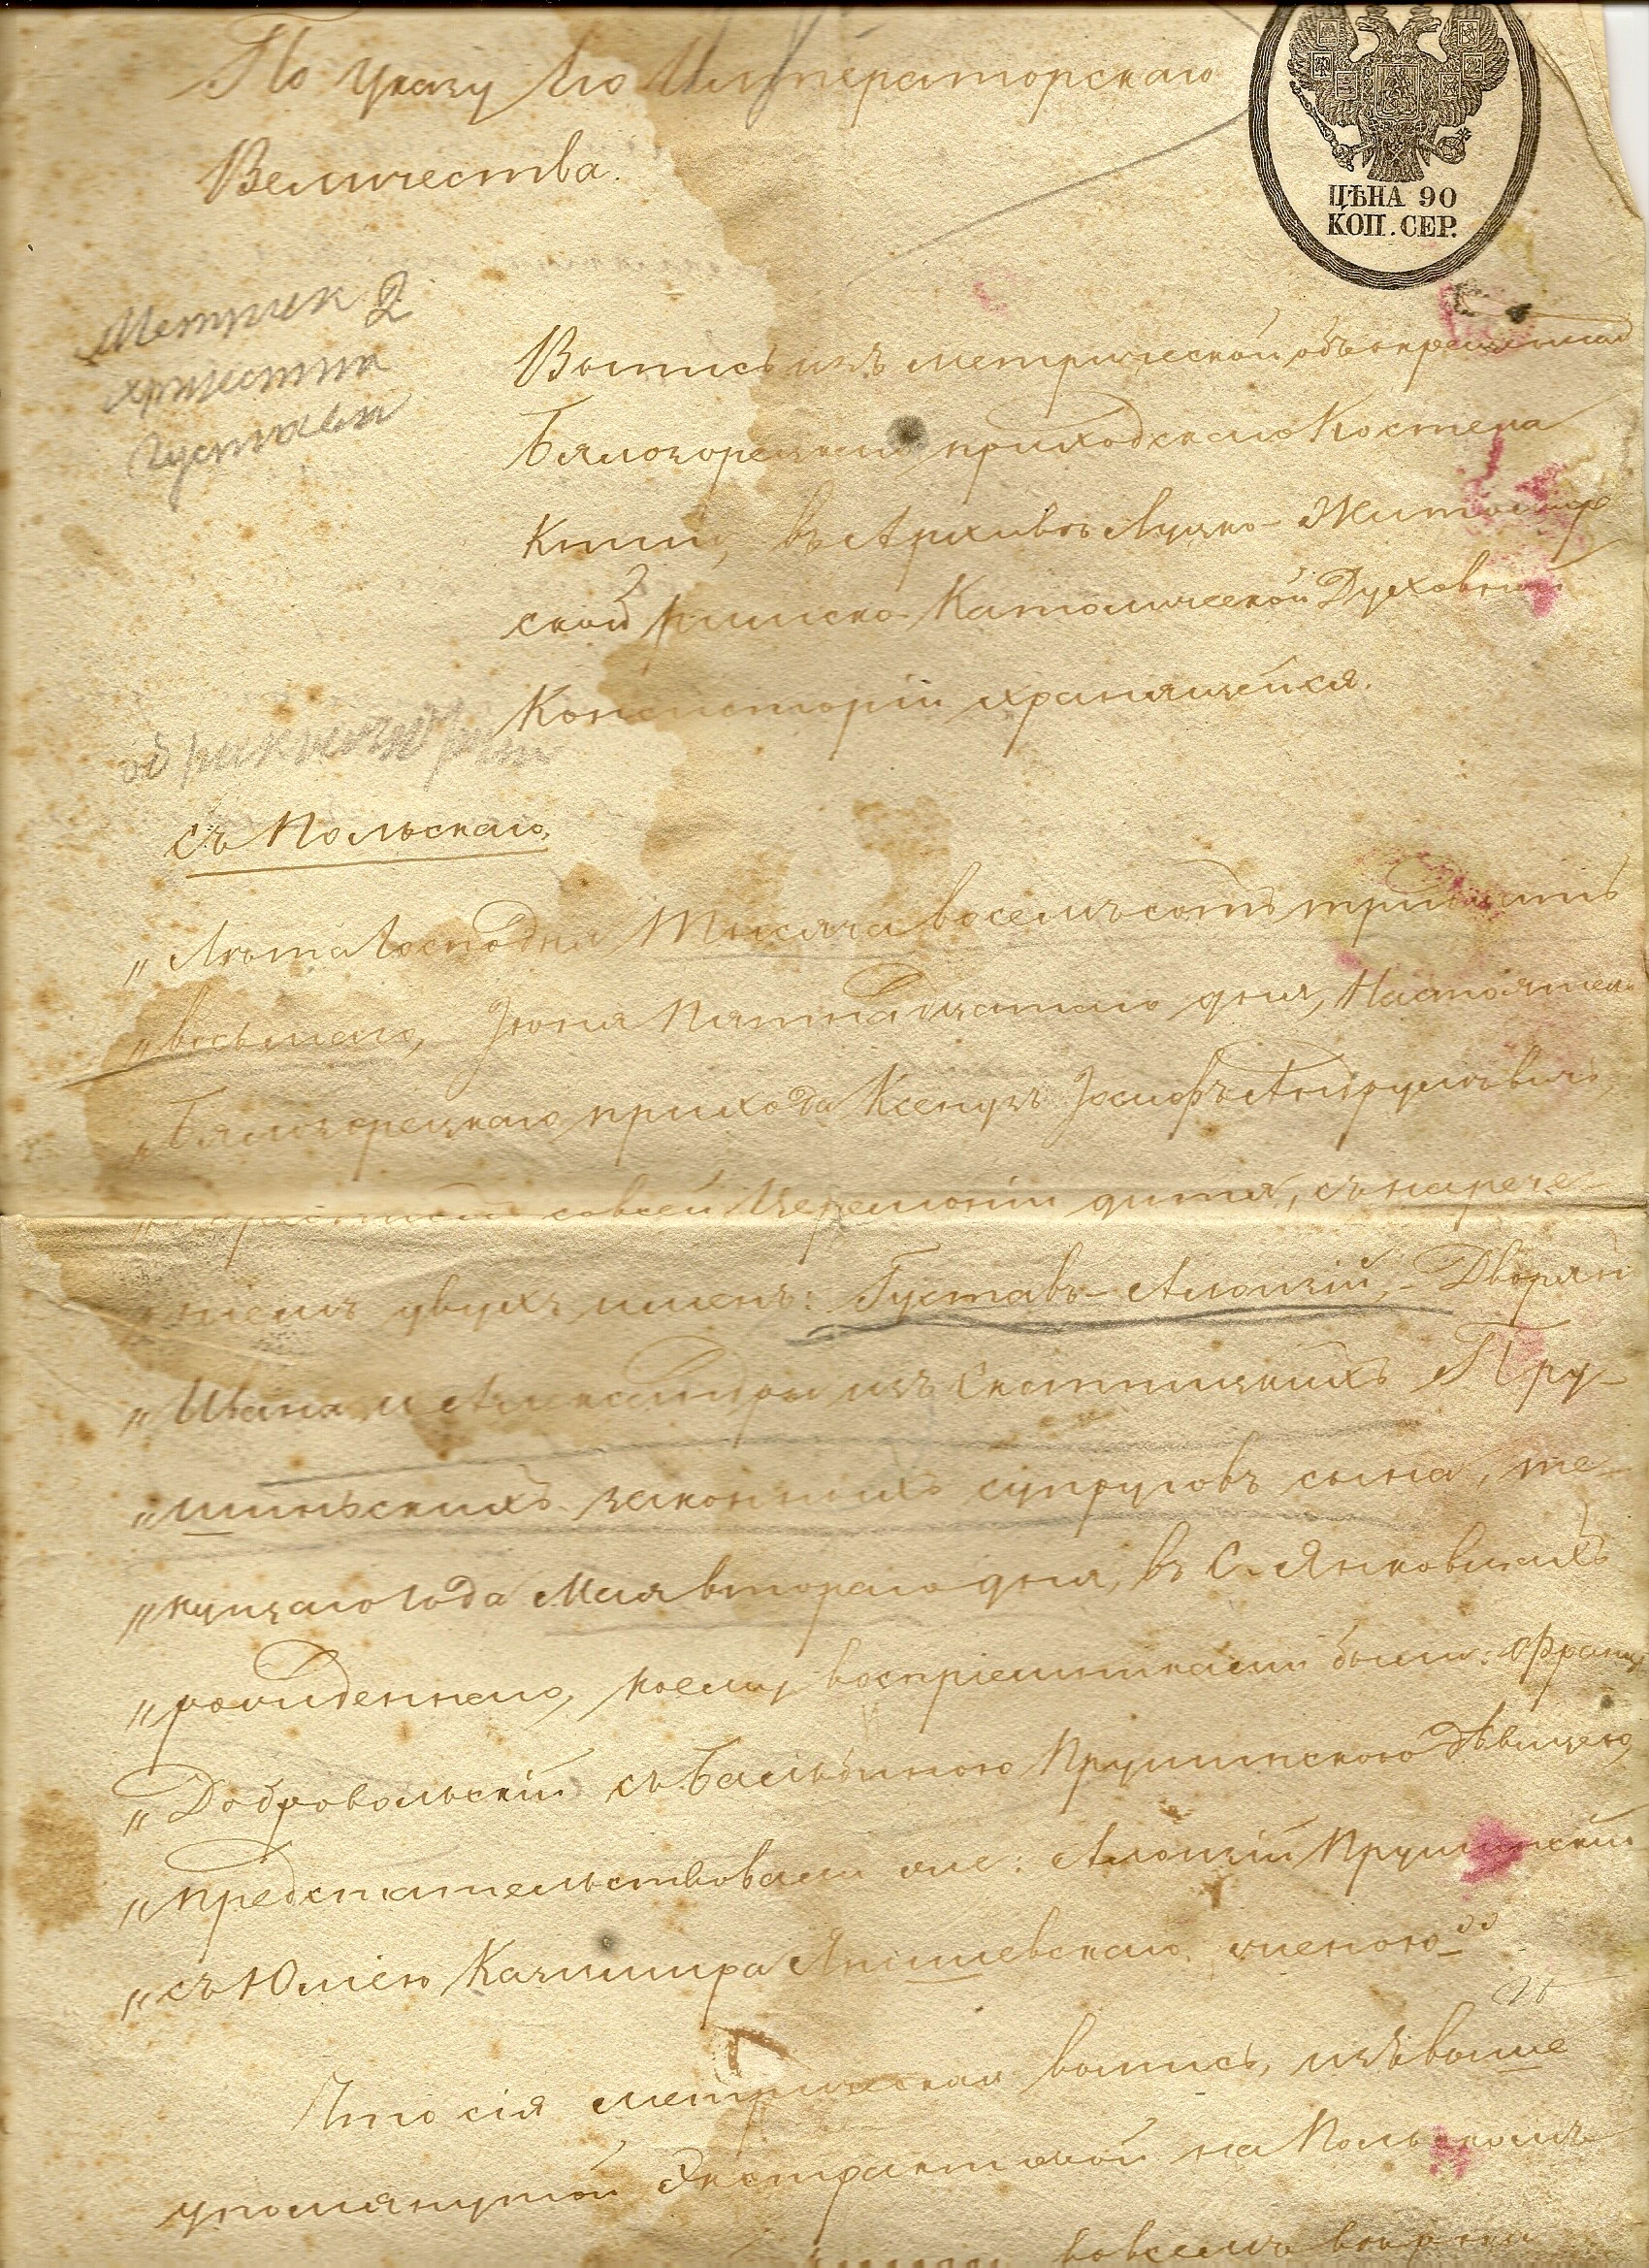 По указу Его Императорскаго
Величества.
ЦѢНА 90
КОП. СЕР.
Метрик
Густава
Выпись изъ метрической объ крещенiи
Бялозорецкаго приходскаго Костела
книги, въ Архивѣ Луцко-Житомир
ской Римско-Католической Духовной
Консисторiи хранящейся.
съ Польскаго,
„Лѣта Господня Тысяча восемьсотъ тридцать
„восьмаго, Iюня Пятнадцатаго дня, Настоятель
„Бялозорецкаго прихода Ксендзъ Iосифъ
„ совсей Церемонiи дитя, съ нарече-
„нiемъ двухъ именъ: Густавъ-Алоизiй, Дворян
„Ивана и Александры изъ Скотницкихъ Пру-
„шиньскихъ законныхъ супруговъ сына, те-
„кущаго года Мая втораго дня, въ С. Янковцахъ
„рожденнаго, коему воспрiемниками были: Франц
„Добровольскiй съ Бальбиною Прушинскою дѣвицею,
„предстательствовали же: Алоизiй Прушинскiй
„съ Юлiею Казимира Янишевскаго женою
Что сiя метрическая выпись, изъ выше
упомянутой Экстрактовой на Польскомъ
вовсемъ вѣрна